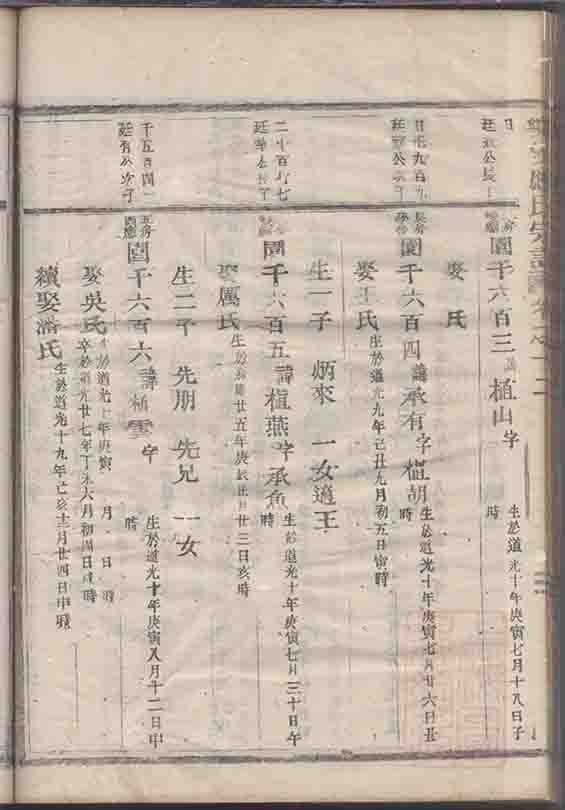 氏宗譜
園千六百三 諱植山 字
生於道光十年庚寅七月十八日子
時
娶 氏
長房
園千六百四 諱承有 字植胡
生於道光十年庚寅七月廿六日丑
時
娶王氏 生於道光九年己丑九月初五日寅時
生一子 炳來 一女適王
園千六百五 諱植燕 字承魚
生於道光十年庚寅七月三十日午
時
娶厲氏 廿五年庚辰 月廿三日亥時
生二子 先朋 先兄 一女
千五百四一
廷有公次子
五房
園千六百六 諱植雲 字
生於道光十年庚寅八月十二日申
時
娶吳氏 生於道光十年庚寅 月 日 時
卒於道光廿七年丁未六月初四日 時
續娶潘氏 生於道光十九年己亥十二月廿四日申時